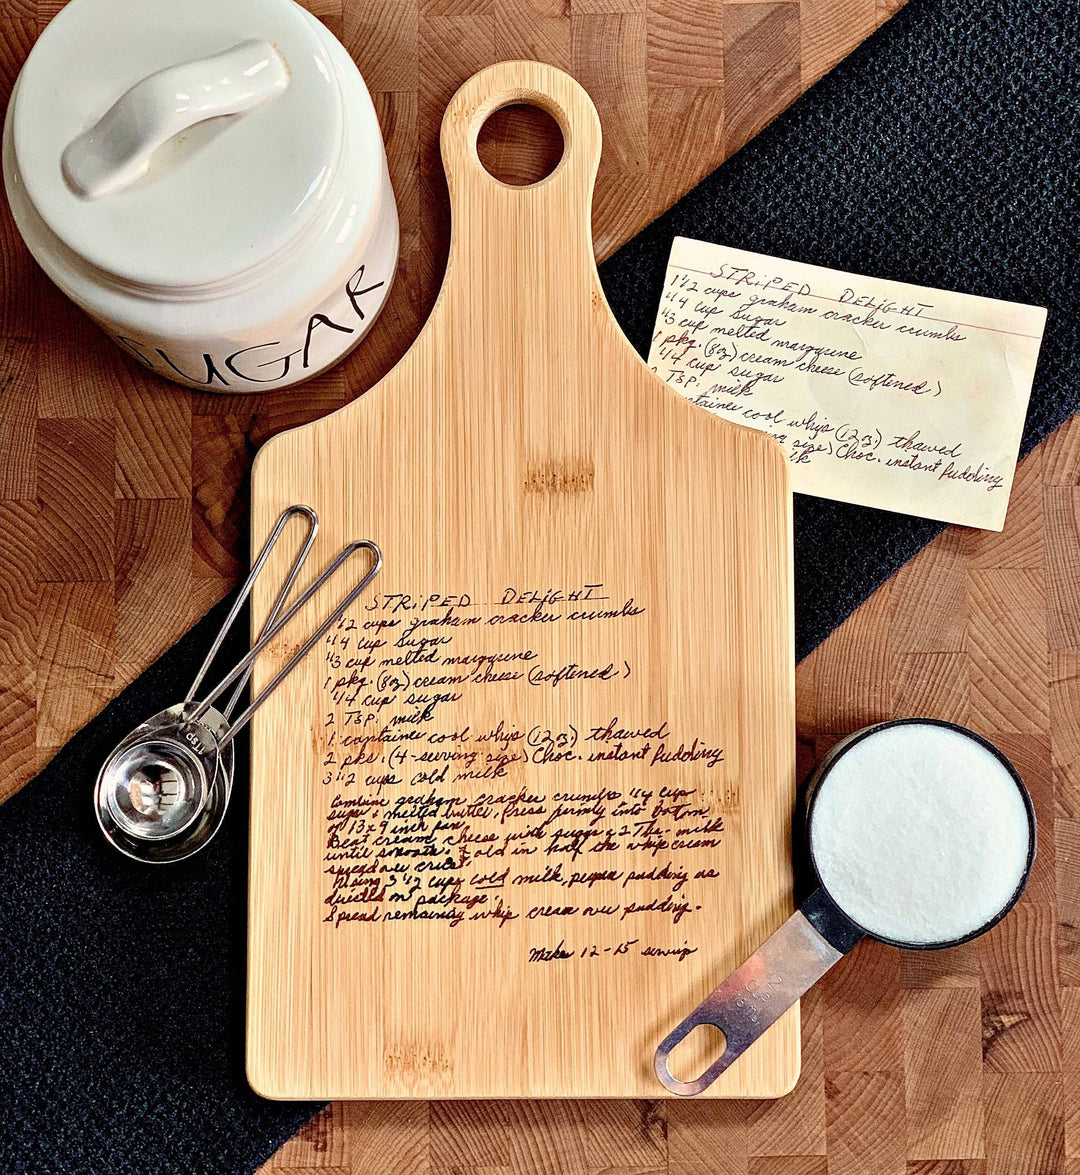 SUGAR
STRIPED DELIGHT
1 1/2 cups graham cracker crumbs
1/4 cup sugar
1/3 cup melted margarine
1 pkg. (8oz) cream cheese (softened)
1/4 cup sugar
TSP. milk
container cool whip (12oz) thawed
size) Choc. instant pudding
STRIPED DELIGHT
1/2 cups graham cracker crumbs
1/4 cup sugar
1/3 cup melted margarine
1 pkg. (8oz) cream cheese (softened)
1/4 cup sugar
2 TSP. milk
1 container cool whip (12oz) thawed
2 pks. (4-serving size) Choc. instant pudding
3 1/2 cups cold milk
Combine graham cracker crumbs 1/4 cup
sugar + melted butter. Press firmly into bottom
of 13 x 9 inch pan.
Beat cream cheese with sugar & 2 Tbs. milk
until smooth. Fold in half the whip cream
spread over crust.
Using 3 1/2 cups cold milk, prepare pudding as
directed on package.
Spread remaining whip cream over pudding.
Makes 12-15 servings
1 TSP